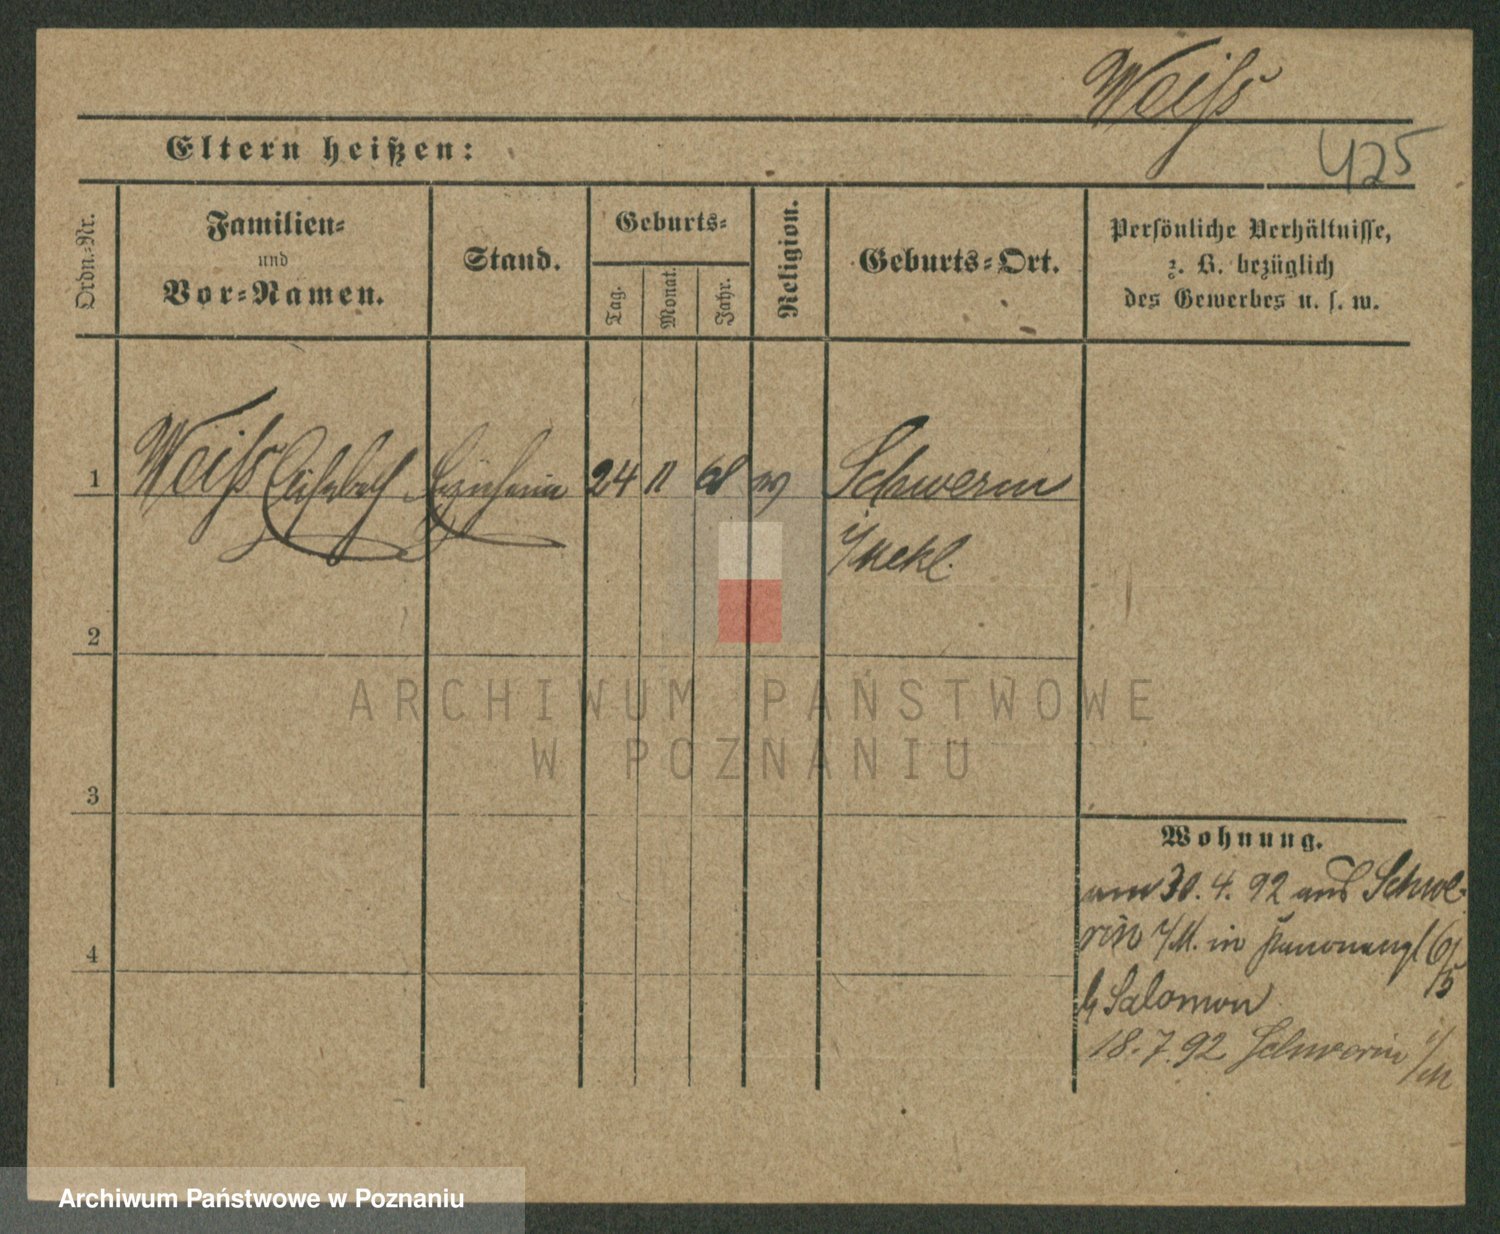 Weiſs
425
Eltern heißen:
Ordn.-Nr.
Familien-
und
Vor-Namen.
Stand.
Geburts-
Tag.
Monat.
Jahr.
Religion.
Geburts-Ort.
Persönliche Verhältnisse,
z. B. bezüglich
des Gewerbes u. s. w.
1 Weiſs Elisabeth 24 11 Schwerin
i/Mekl.
2
3
4
Wohnung.
am 30. 4. 92 aus Schwe-
rin i/M. in 6/5
Salomon
18. 7. 92 Schwerin i/M
ARCHIWUM PAŃSTWOWE
W POZNANIU
Archiwum Państwowe w Poznaniu